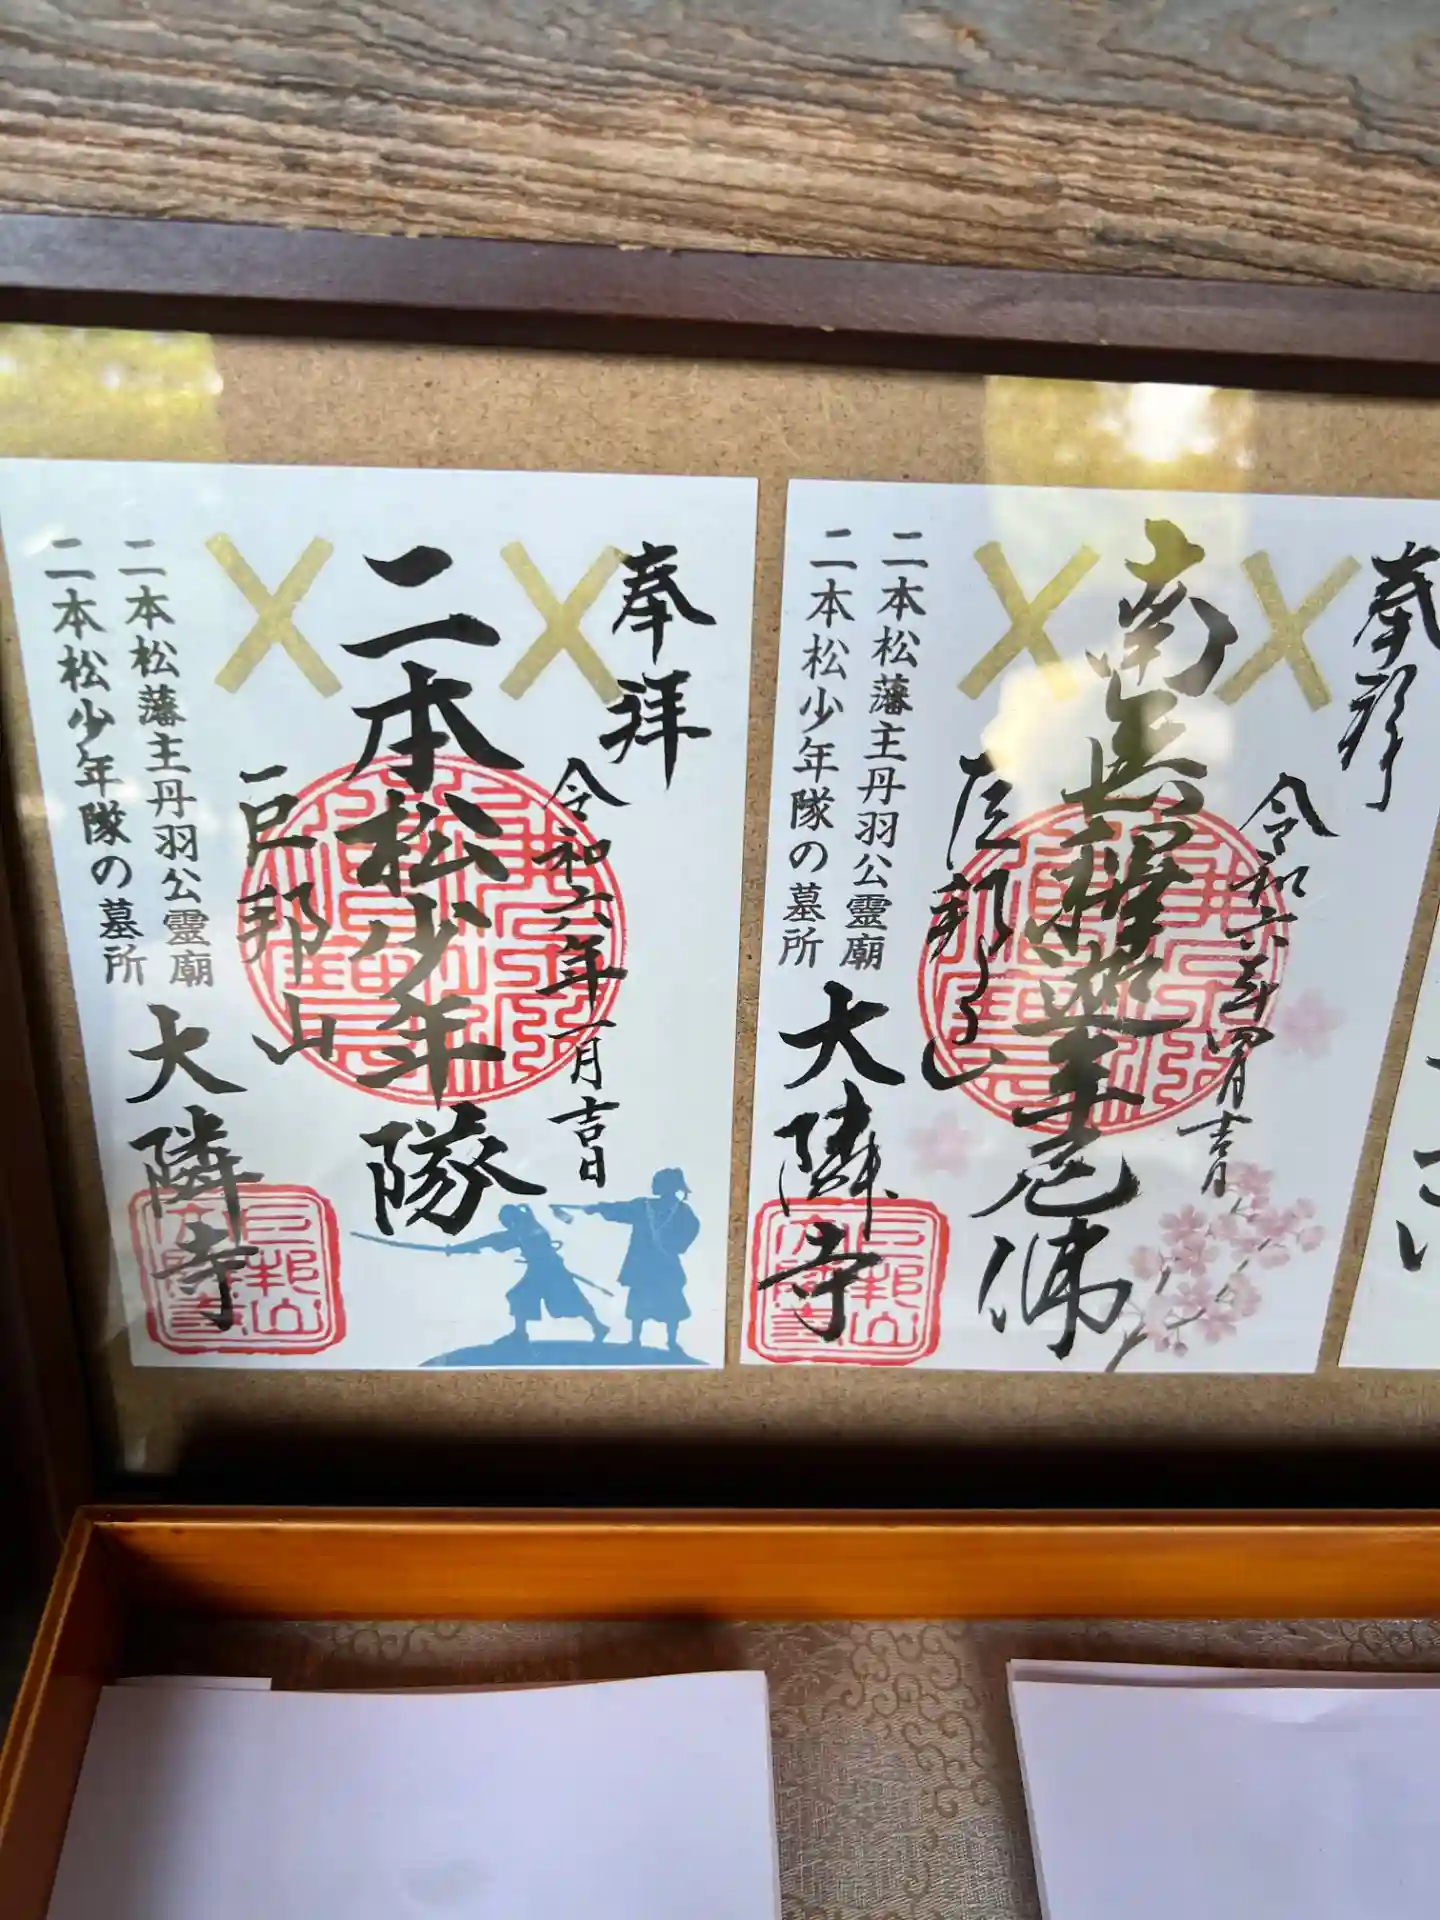 奉拝
南無釋迦牟尼佛
令和六年四月吉日
巨邦山
大隣寺
二本松藩主丹羽公霊廟
二本松少年隊の墓所
奉拝
二本松少年隊
令和六年一月吉日
巨邦山
大隣寺
二本松藩主丹羽公霊廟
二本松少年隊の墓所